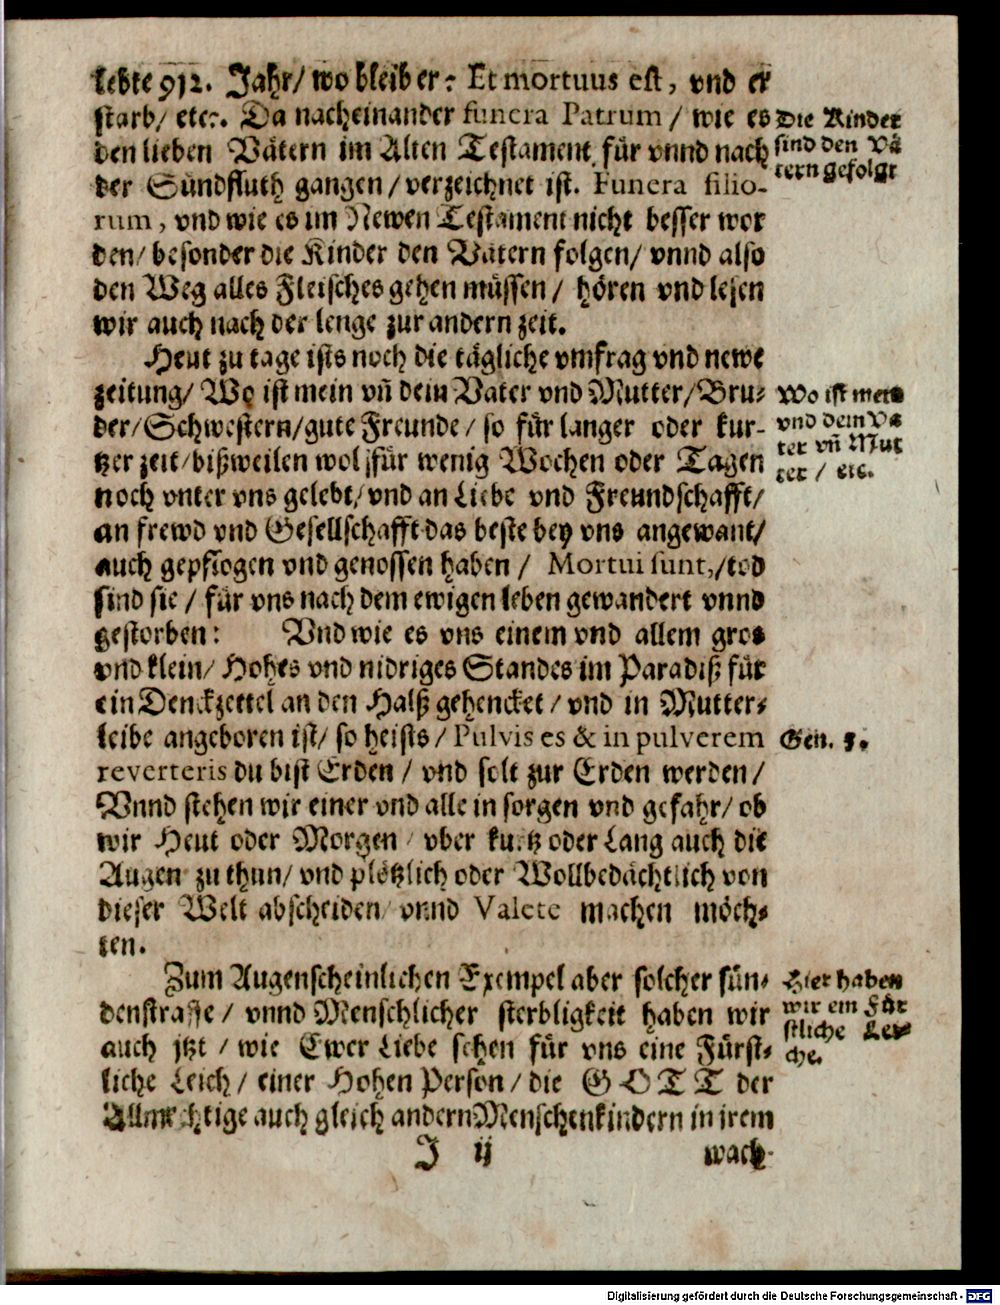 lebte 912. Jahr/ wo bleib er: Et mortuus est, vnd er
starb/ etc. Da nacheinander funera Patrum / wie es
den lieben Vätern im Alten Testament für vnnd nach
der Sündfluth gangen / verzeichnet ist. Funera filio-
rum, vnd wie es im Newen Testament nicht besser wor
den/ besonder die Kinder den Vätern folgen/ vnnd also
den Weg alles Fleisches gehen müssen / hören vnd lesen
wir auch nach der lenge zur andern zeit.
Die Kinder
sind den Vä
tern gefolgt
Heut zu tage ists noch die tägliche vmfrag vnd newe
zeitung/ Wo ist mein vn̄ dein Vater vnd Mutter/ Bru-
der/ Schwestern/ gute Freunde / so für langer oder kur-
tzer zeit/ bißweilen wol für wenig Wochen oder Tagen
noch vnter vns gelebt/ vnd an Liebe vnd Freundschafft/
an frewd vnd Gesellschafft das beste bey vns angewant/
auch gepflogen vnd genossen haben / Mortui sunt, / tod
sind sie / für vns nach dem ewigen leben gewandert vnnd
gestorben: Vnd wie es vns einem vnd allem gros
vnd klein/ Hohes vnd nidriges Standes im Paradiß für
ein Denckzettel an den Halß gehencket / vnd in Mutter-
leibe angeboren ist/ so heists / Pulvis es & in pulverem
reverteris du bist Erden / vnd solt zur Erden werden /
Vnnd stehen wir einer vnd alle in sorgen vnd gefahr/ ob
wir Heut oder Morgen / vber kurtz oder Lang auch die
Augen zu thun/ vnd plötzlich oder Wollbedächtlich von
dieser Welt abscheiden / vnnd Valete machen möch-
ten.
Wo ist mein
vnd dein Va
ter vn̄ Mut
ter / etc.
Gen. 3.
Zum Augenscheinlichen Exempel aber solcher sün-
denstraffe / vnnd Menschlicher sterbligkeit haben wir
auch jtzt / wie Ewer Liebe sehen für vns eine Fürst-
liche Leich / einer Hohen Person / die GOTT der
Allmechtige auch gleich andern Menschenkindern in irem
Hier haben
wir ein Für
stliche Lei-
che.
J ij
wach-
Digitalisierung gefördert durch die Deutsche Forschungsgemeinschaft - DFG